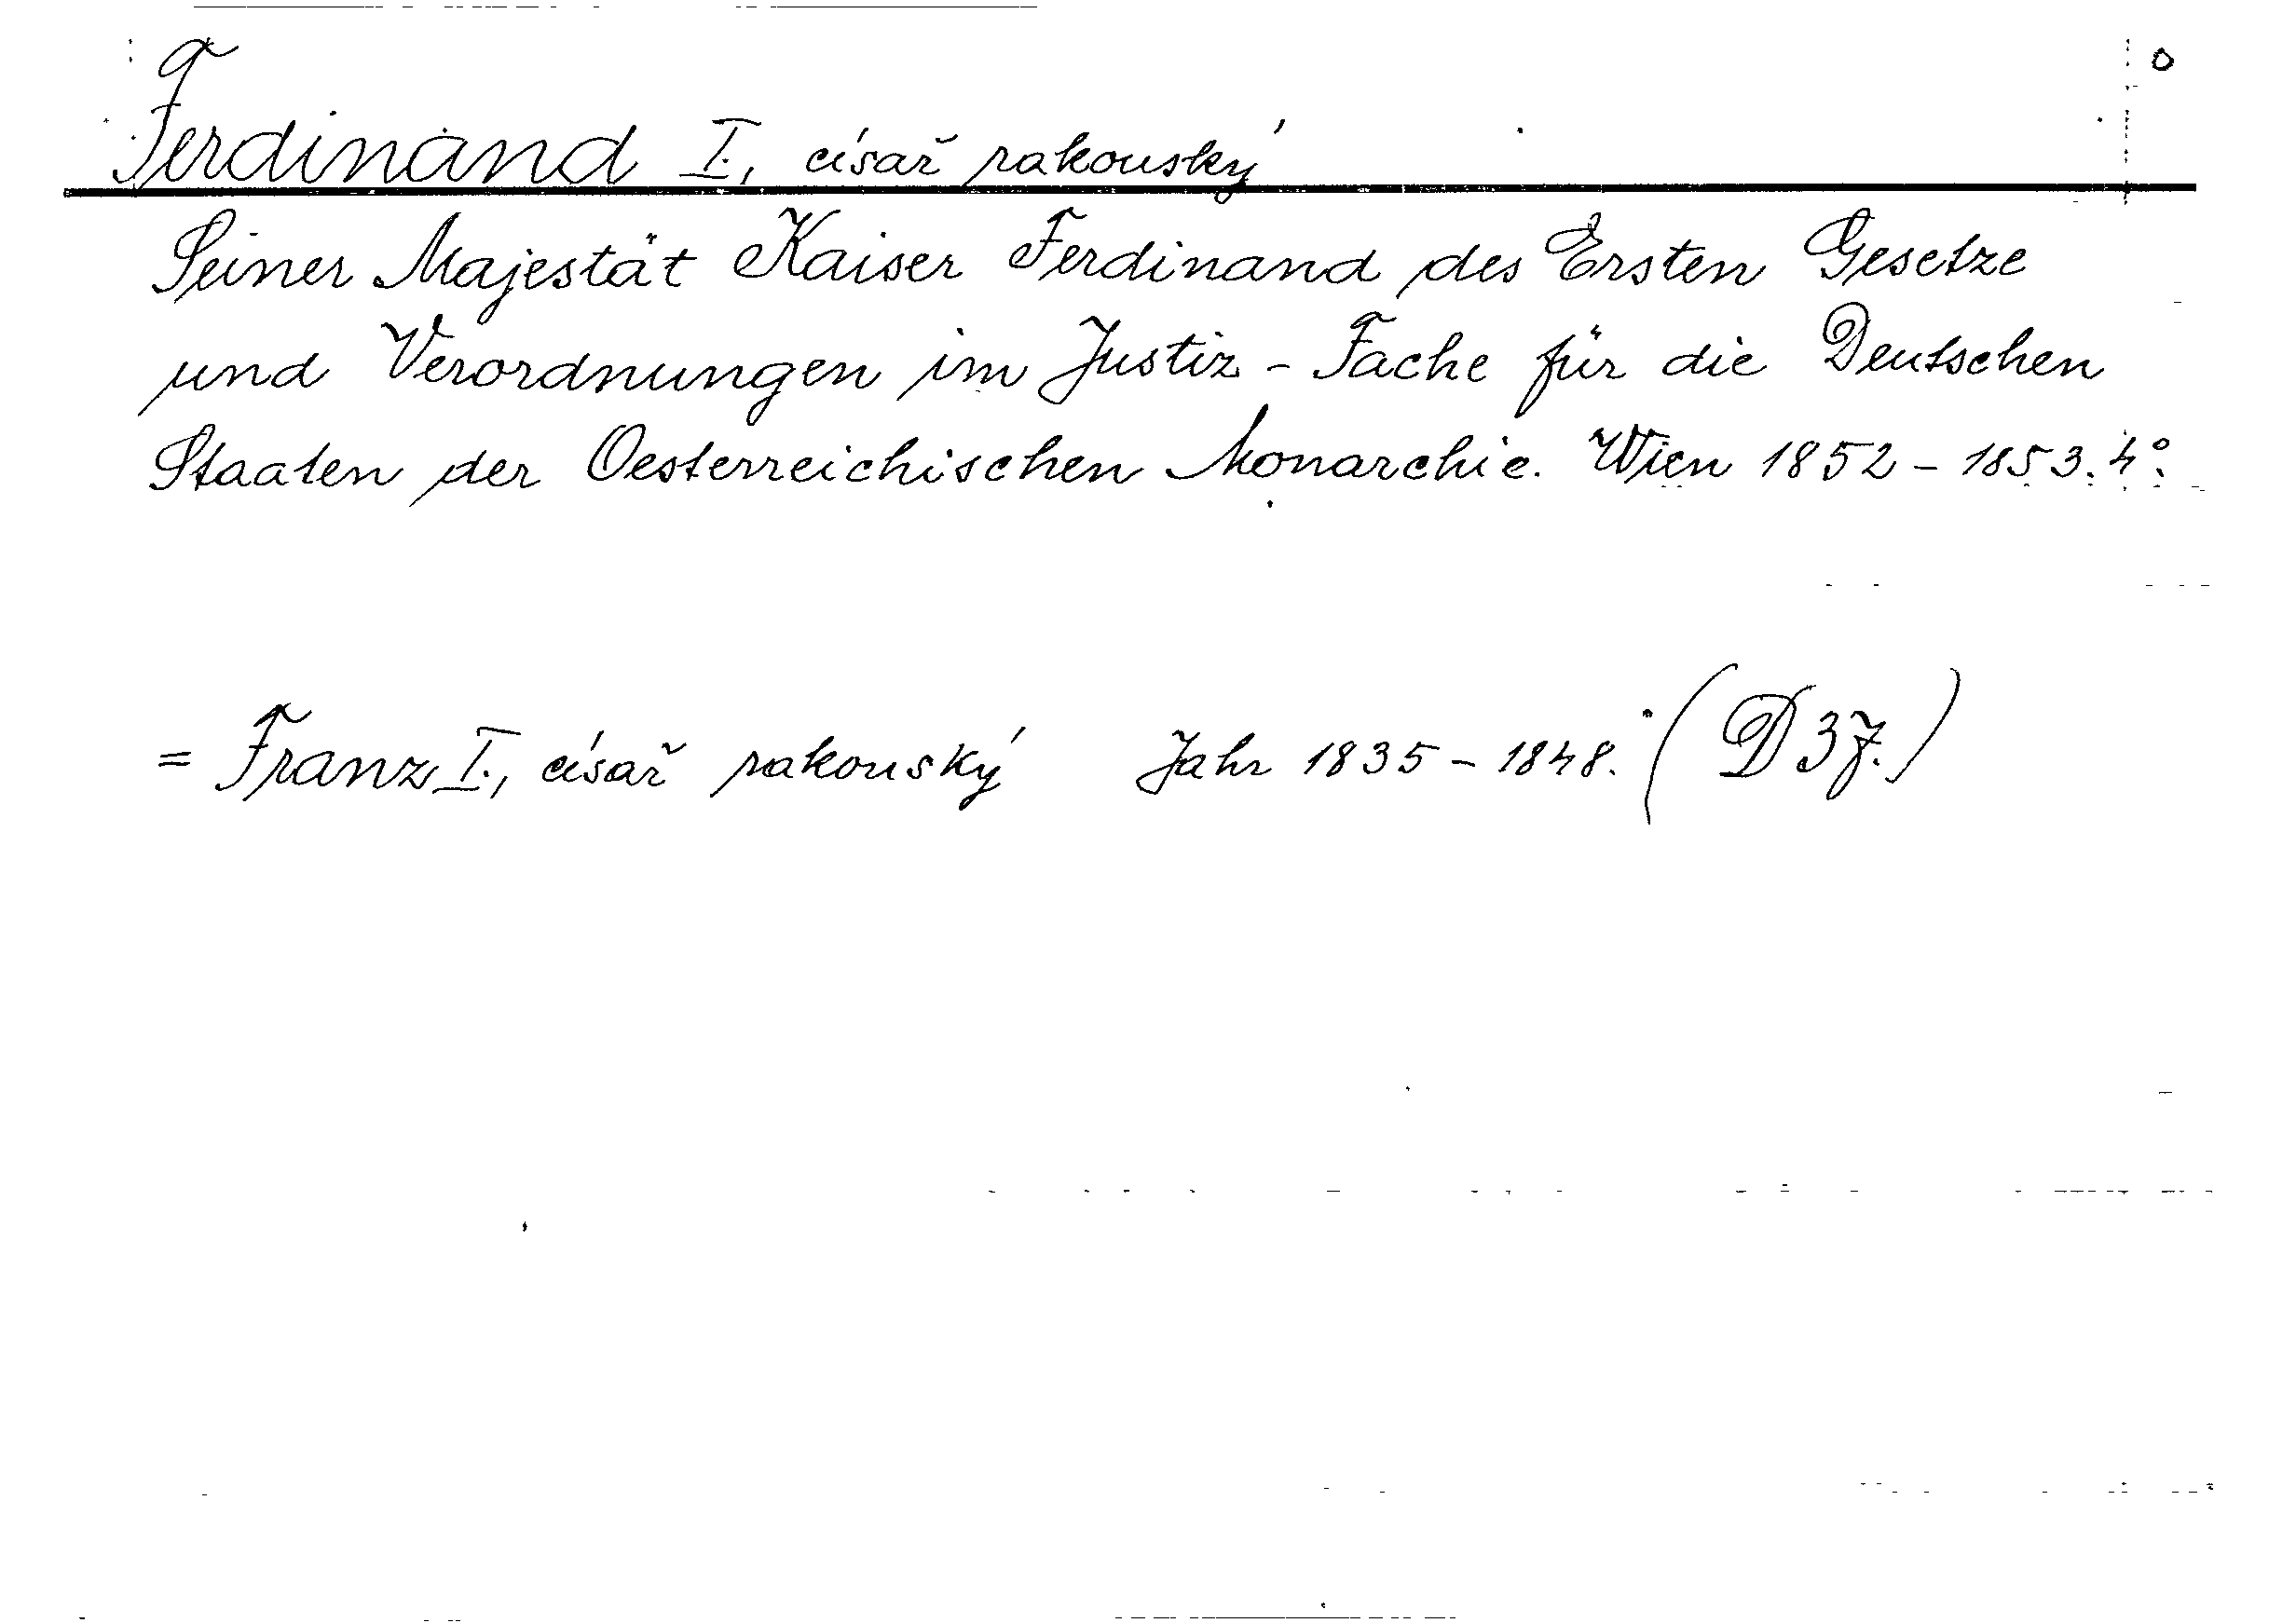 Ferdinand I., císař rakouský
Seiner Majestät Kaiser Ferdinand des Ersten Gesetze
und Verordnungen im Justiz - Fache für die Deutschen
Staaten der Oesterreichischen Monarchie. Wien 1852 - 1853. 4°.
= Franz I., císař rakouský Jahr 1835 - 1848. (D 37.)